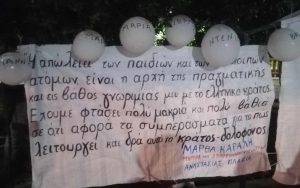 ΜΑΡΙΣ
ΝΤΕΝΙ
"Η απώλεια των παιδιών και των υπολοίπων
ατόμων είναι η αρχή της πραγματικής
και εις βάθος γνωριμίας μου με το ελληνικό κράτος.
Έχουμε φτάσει πολύ μακριά και πολύ βαθιά
σε ότι αφορά τα συμπεράσματα για το πως
λειτουργεί και δρα αυτό το κράτος-δολοφόνος
ΜΑΡΘΑ ΚΑΡΑΛΗ
ΑΝΑΣΤΑΣΙΑΣ ΠΛΑΚΙΑ